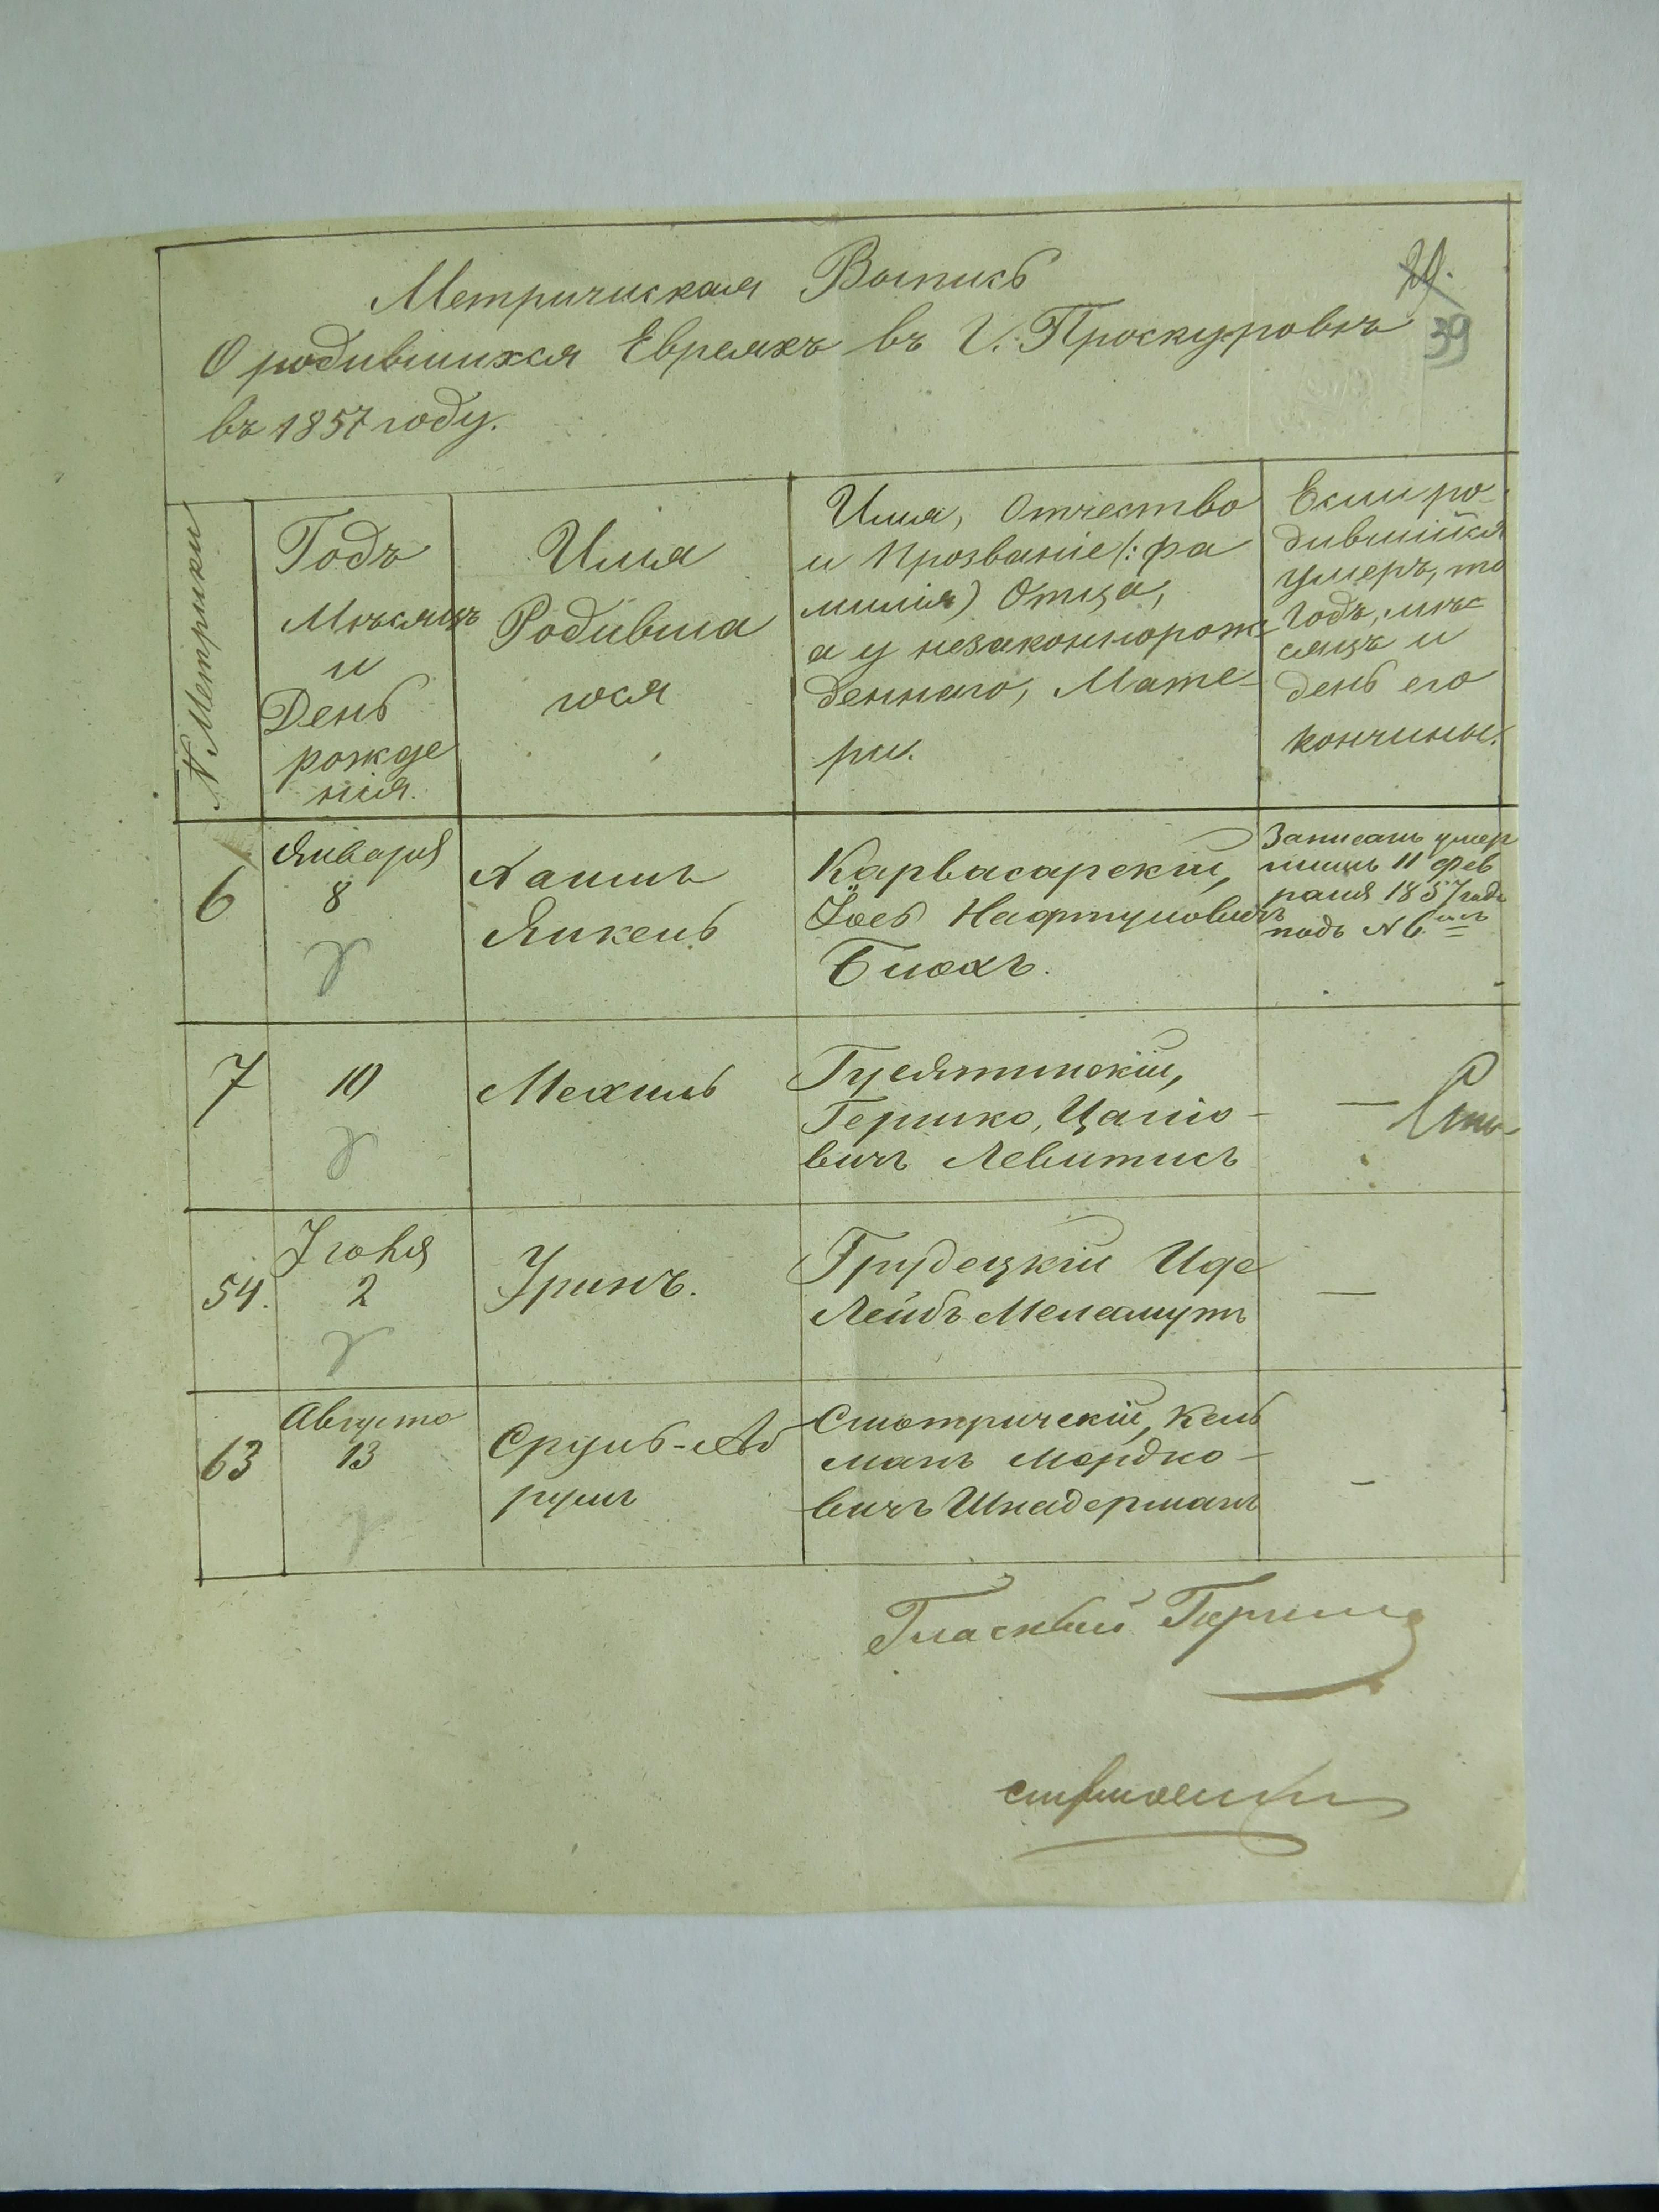 Метрическая Выпись
О родившихся Евреяхъ въ Г. Проскуровѣ
въ 1857 году.
39
№ Метрики
Годъ
Мѣсяцъ
и
День
рожде
нія.
Имя
Родивша
гося
Имя, Отчество
и Прозваніе (: фа
милія) Отца,
а у незаконнорож
деннаго, Мате-
ри.
Если ро-
дившійся
умеръ, то
годъ, мѣс
сяцъ и
день его
кончины.
6
Января
8
Хаимъ
Янкель
Карвасарскій,
Іось Нафтуловичъ
Блохъ.
Записанъ умер
шимъ 11 фев
раля 1857 года
подъ № 6.мъ
7
10
Мехиль
Гусятинскій,
Гершко, Цаліо-
вичъ Левитисъ
—
54.
Іюня
2
Уринъ.
Грудецкій Иде
Лейбъ Меламутъ
—
63
Августа
13
Сруль-Аб
румъ
Смотрическій, Кель
манъ Мордко-
вичъ Шнадерманъ
—
Гласный